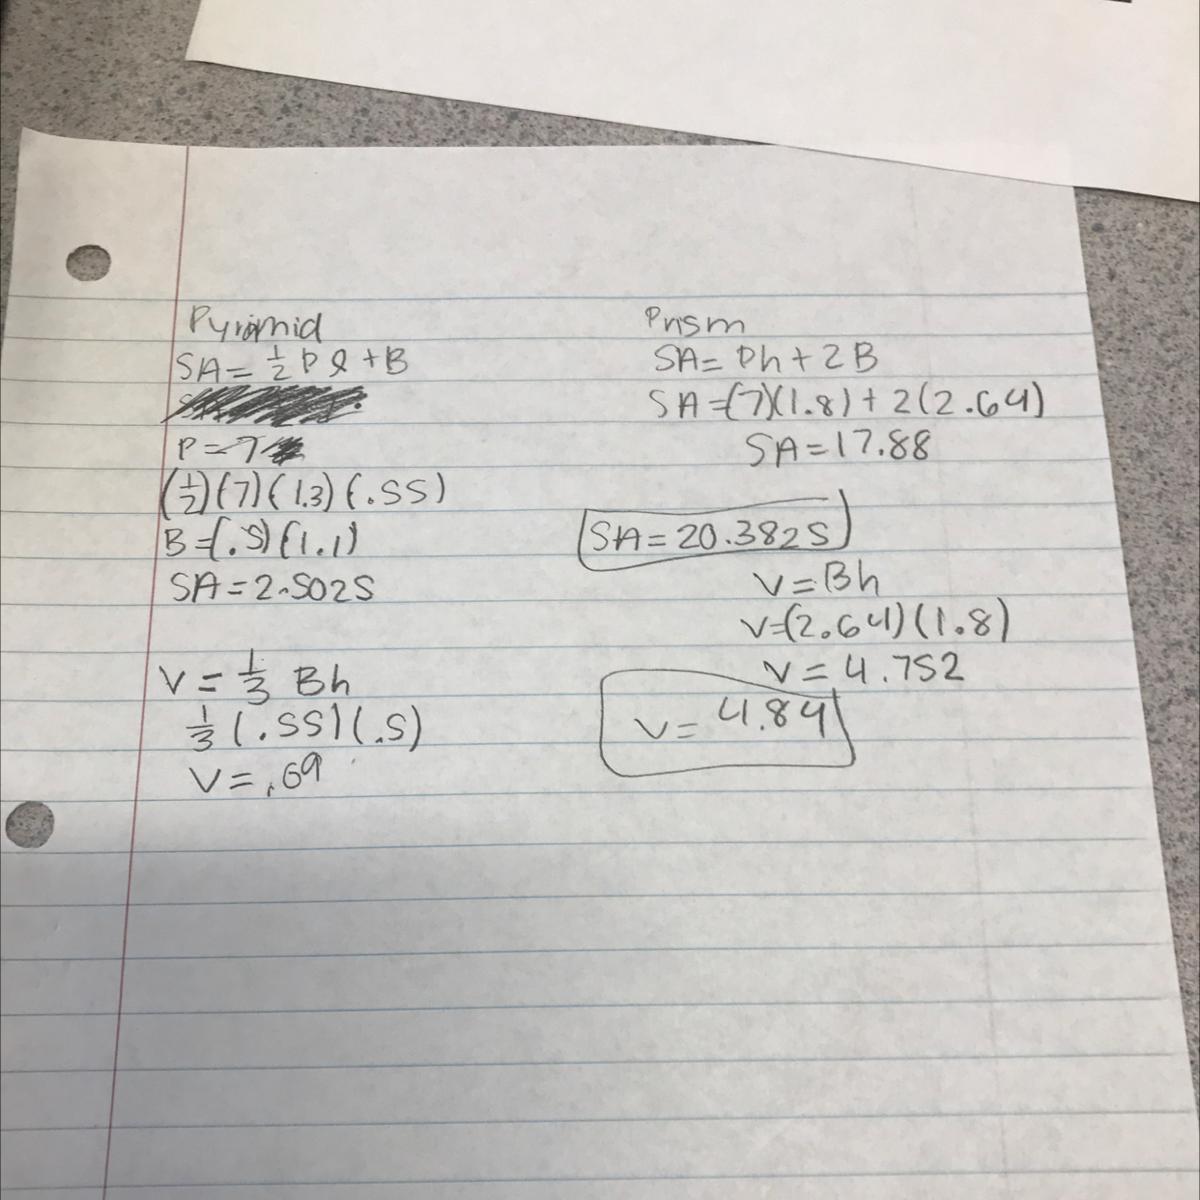 Pyramid
SA = 1/2 P l + B
P = 7
(1/2)(7)(1.3)(.55)
B = (.5)(1.1)
SA = 2.5025
V = 1/3 Bh
1/3 (.55)(.5)
V = .09
Prism
SA = Ph + 2B
SA = (7)(1.8) + 2(2.64)
SA = 17.88
SA = 20.3825
V = Bh
V = (2.64)(1.8)
V = 4.752
V = 4.84